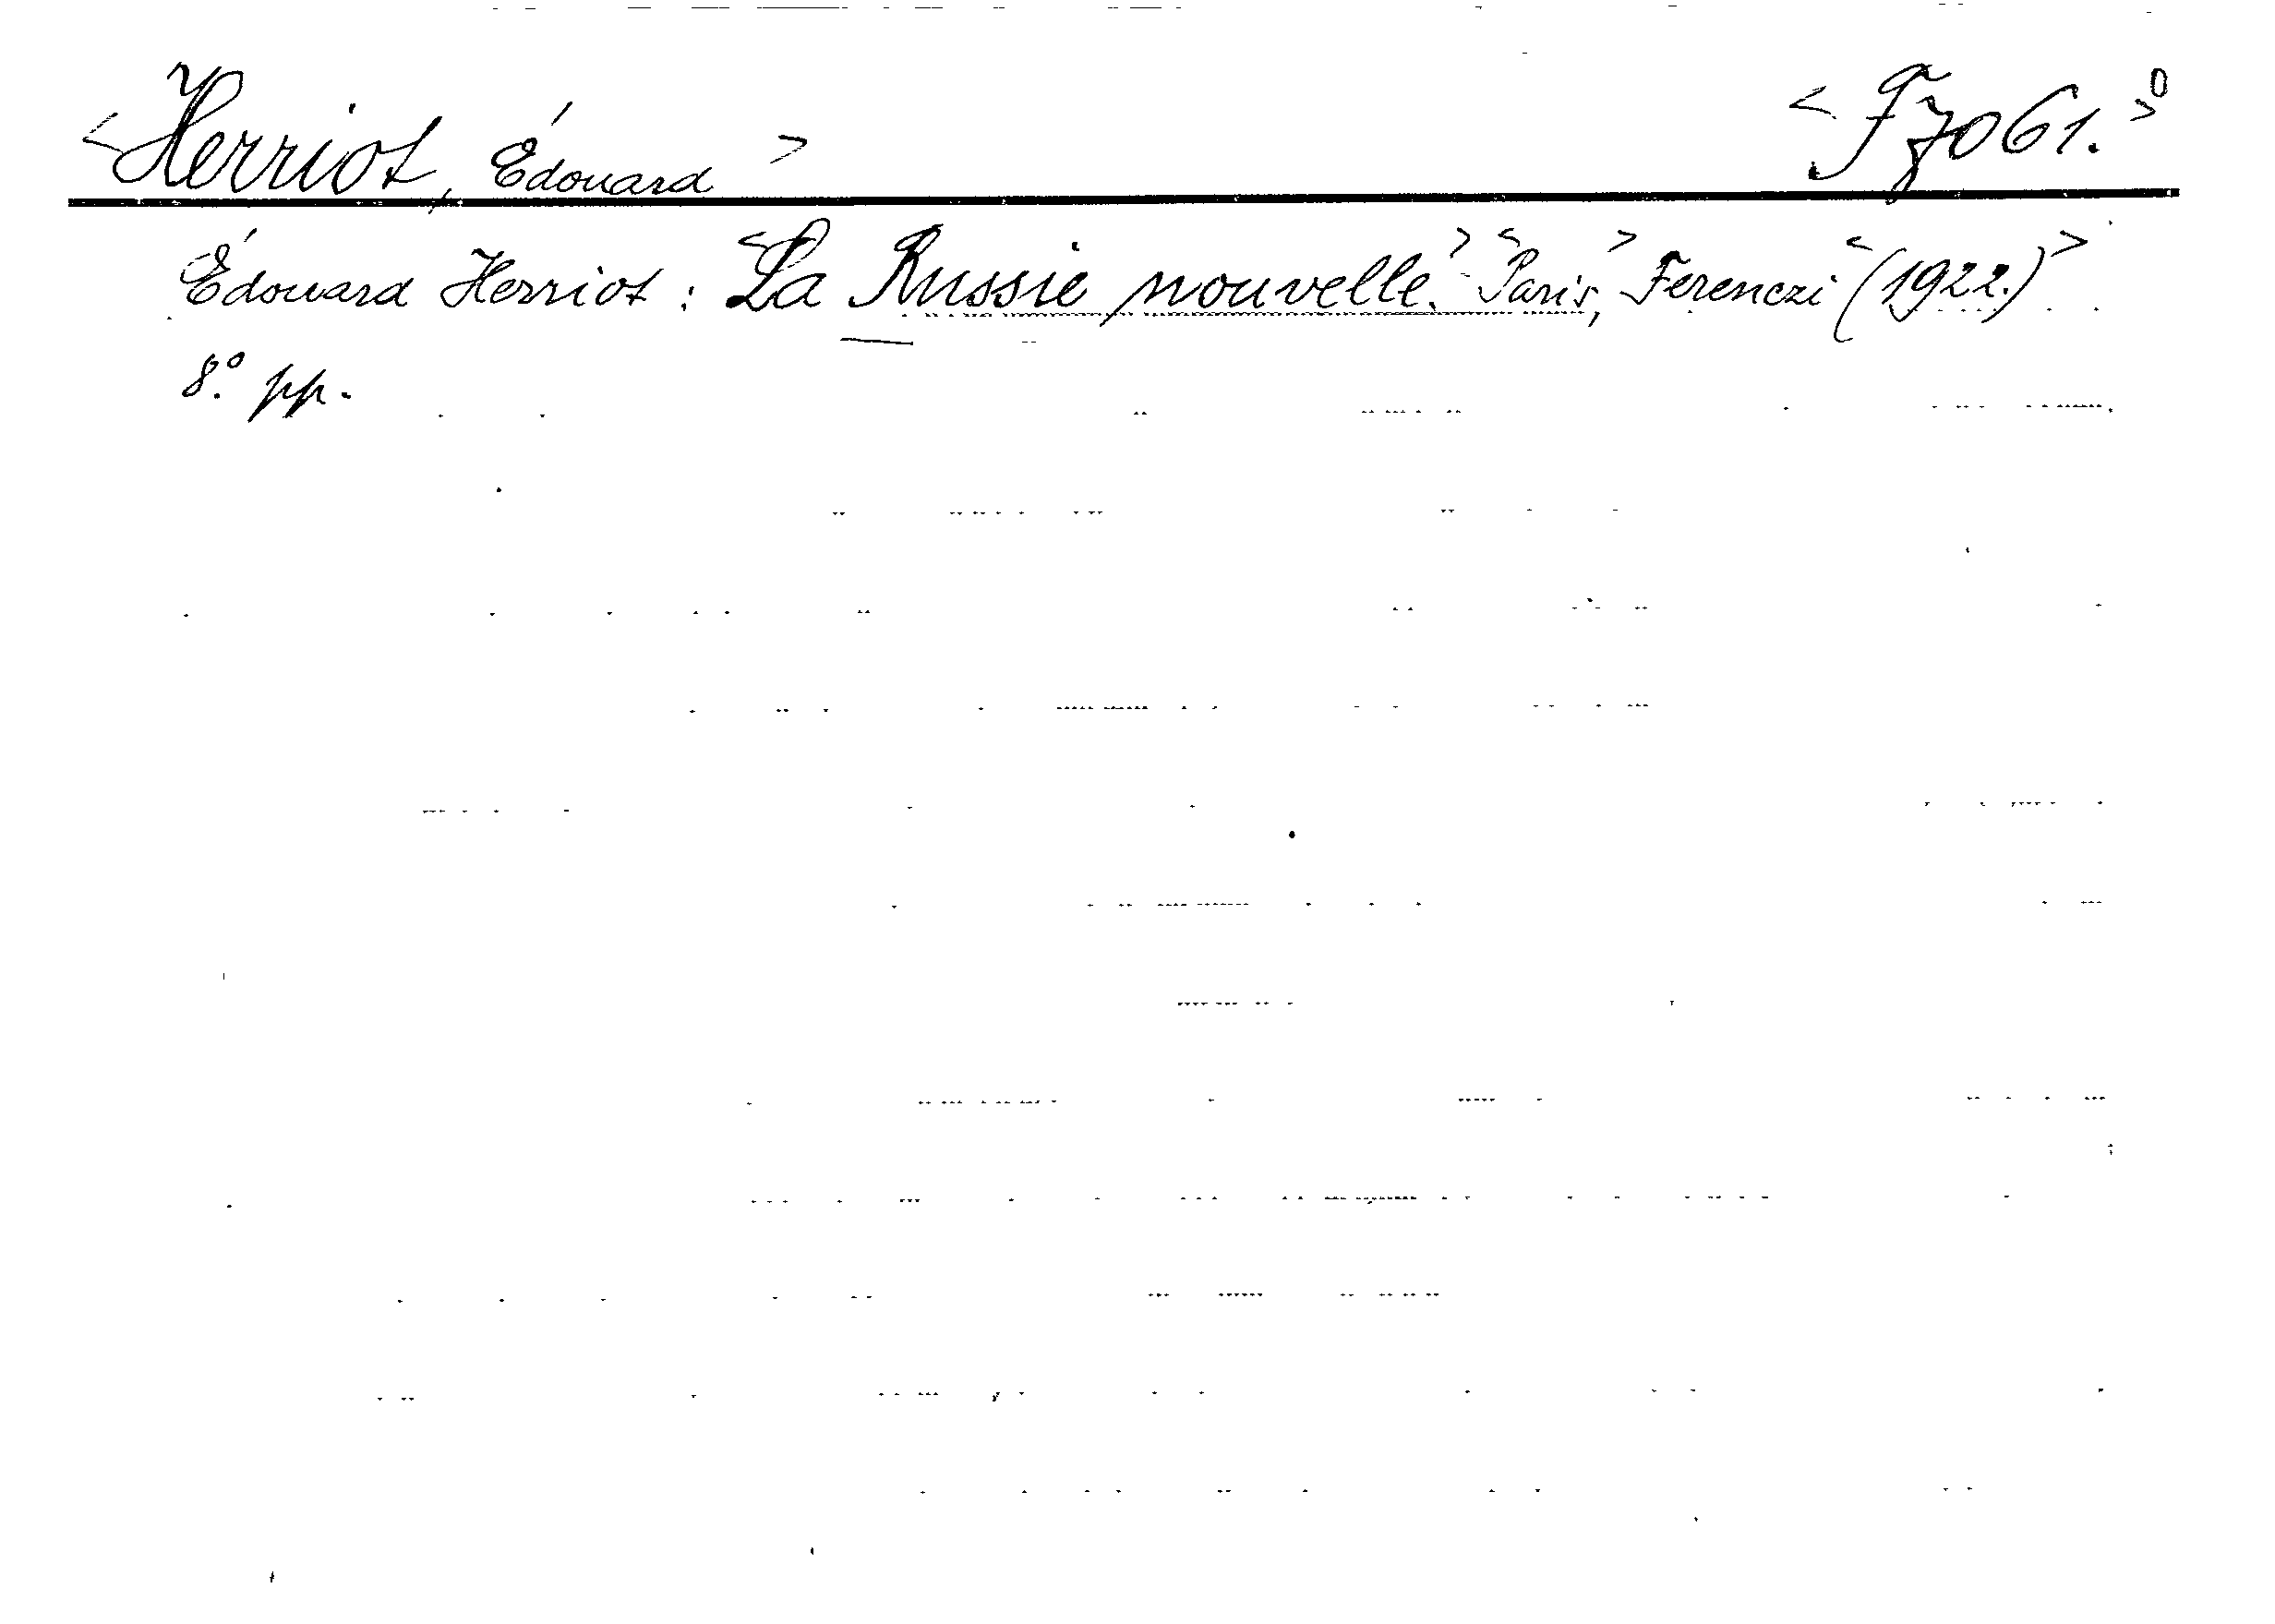 <Herriot, Édouard> <F 7061.>0
Édouard Herriot: <La Russie nouvelle.> <Paris,> Ferenczi <(1922.)>
8.º pp.